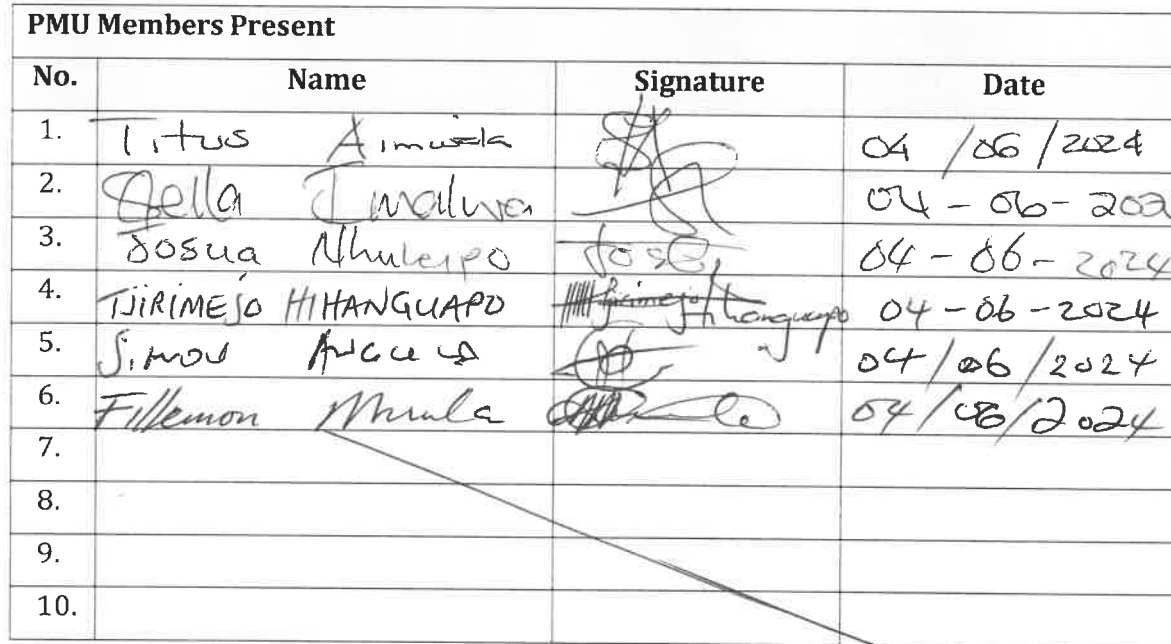 PMU Members Present
No. Name Signature Date
1. Titus 04/06/2024
2. Stella Imalwa 04-06-202
3. Josua 04-06-2024
4. TJIRIMEJO HIHANGUAPO Tjirimejo Hihanguapo 04-06-2024
5. Simon 04/06/2024
6. Fillemon 04/06/2024
7.
8.
9.
10.